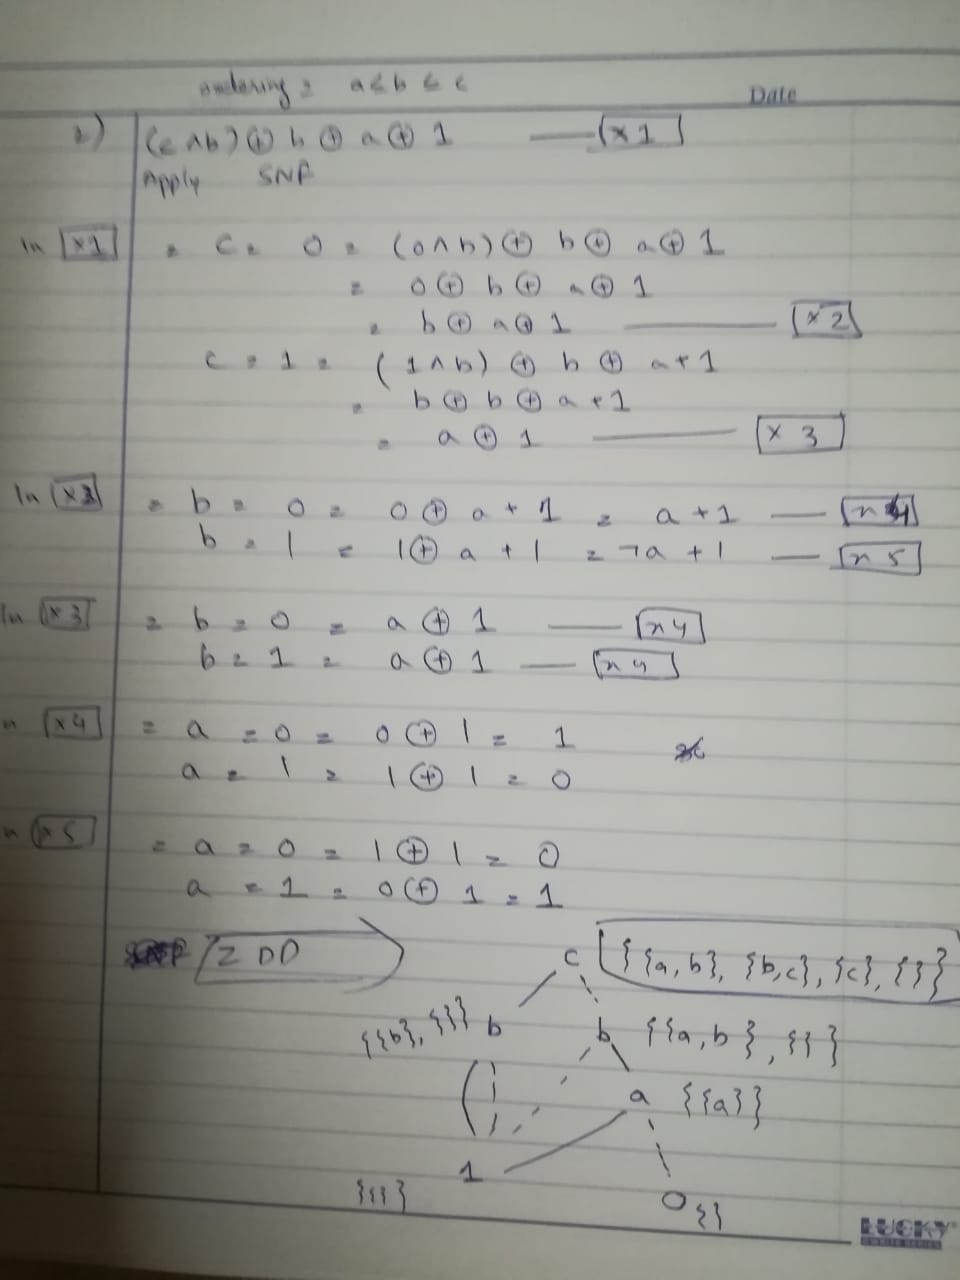 ordering = a ≤ b ≤ c
Date
2) (c ∧ b) ⊕ b ⊕ a ⊕ 1 — x1
Apply SNF
In x1 = c = 0 = (0 ∧ b) ⊕ b ⊕ a ⊕ 1
= 0 ⊕ b ⊕ a ⊕ 1
= b ⊕ a ⊕ 1 — x2
c = 1 = (1 ∧ b) ⊕ b ⊕ a + 1
= b ⊕ b ⊕ a + 1
= a ⊕ 1 — x3
In = b = 0 = 0 ⊕ a + 1 = a + 1 — x4
b = 1 = 1 ⊕ a + 1 = ¬a + 1 — x5
In x3 = b = 0 = a ⊕ 1 — x4
b = 1 = a ⊕ 1 — x4
In x4 = a = 0 = 0 ⊕ 1 = 1
a = 1 = 1 ⊕ 1 = 0
In x5 = a = 0 = 1 ⊕ 1 = 0
a = 1 = 0 ⊕ 1 = 1
ZDD
c {{a,b}, {b,c}, {c}, {}}
{{b}, {}} b b {{a,b}, {}}
a {{a}}
1
{{}}
0 {}
LUCKY